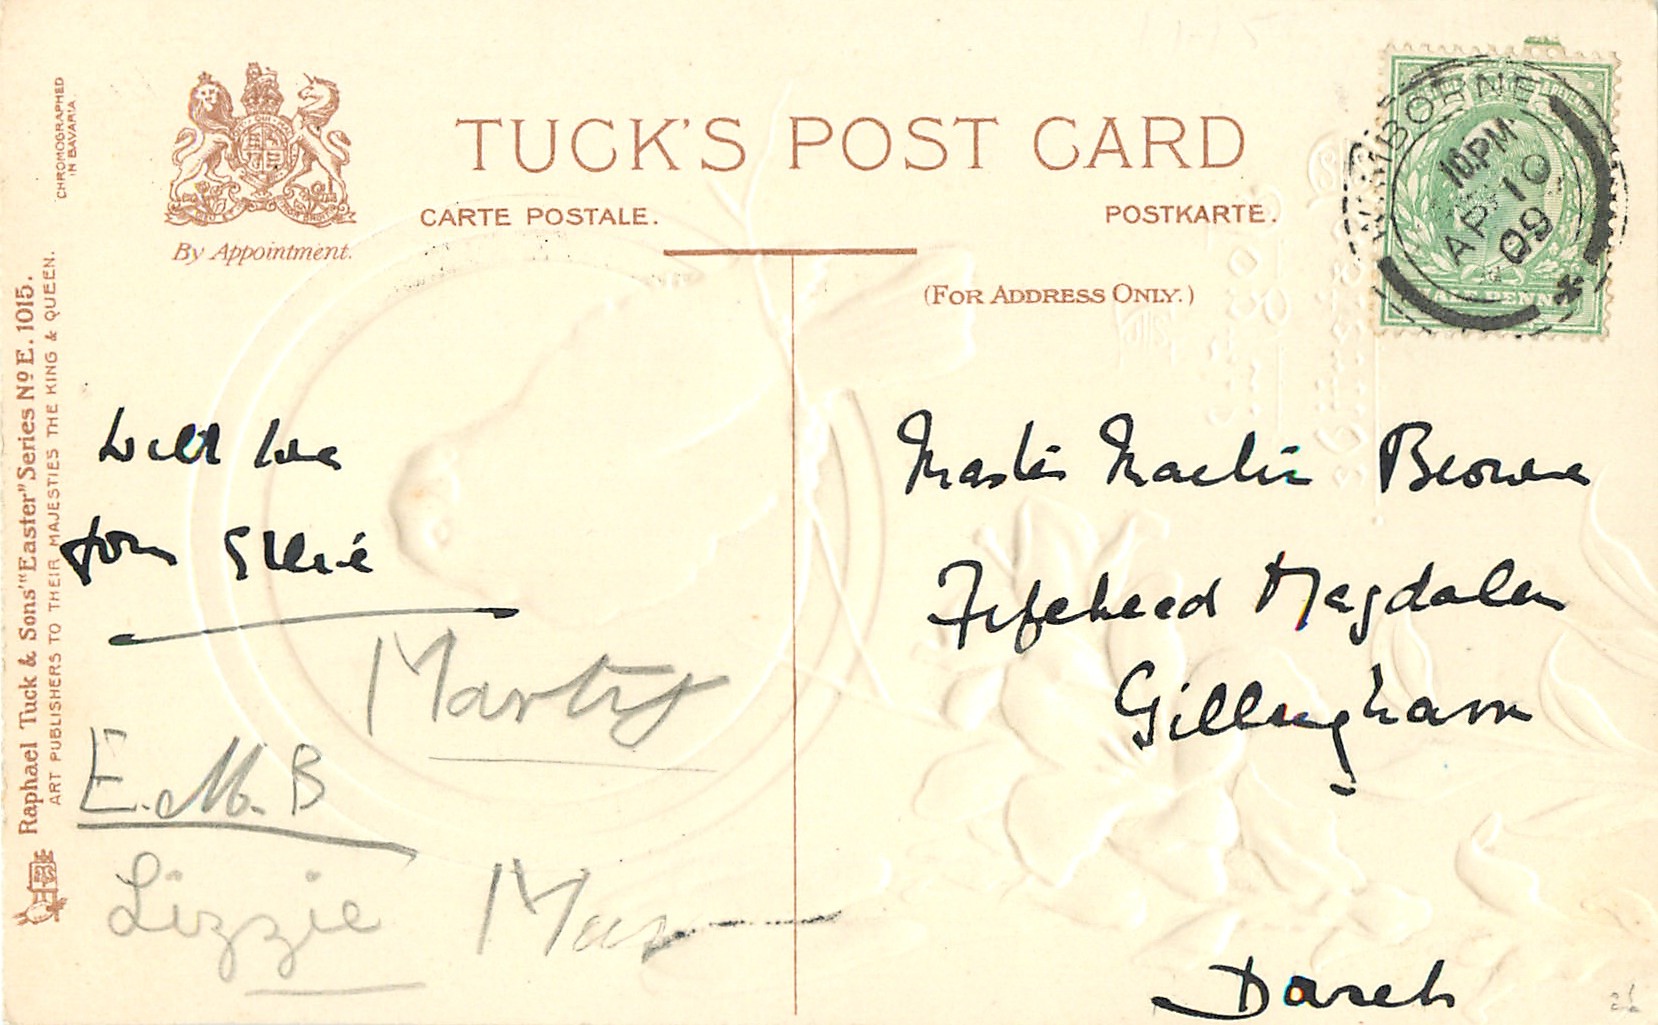 CHROMOGRAPHED
IN BAVARIA
By Appointment.
TUCK'S POST CARD
CARTE POSTALE.
POSTKARTE.
(FOR ADDRESS ONLY.)
WIMBORNE
10PM
AP 10
09
HALFPENNY
Raphael Tuck & Sons' "Easter" Series No E. 1015.
ART PUBLISHERS TO THEIR MAJESTIES THE KING & QUEEN.
With love
from Ellie
Martin
E.M.B
Lizzie
Master Martin Browne
Fifehead Magdalen
Gillingham
Dorset